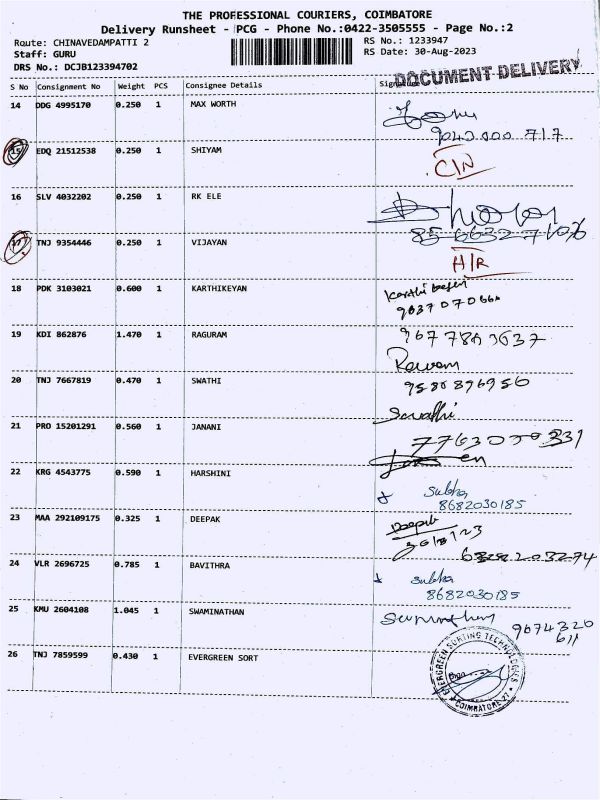 THE PROFESSIONAL COURIERS, COIMBATORE
Delivery Runsheet - PCG - Phone No.:0422-3505555 - Page No.:2
Route: CHINAVEDAMPATTI 2
Staff: GURU
DRS No.: DCJB123394702
RS No.: 1233947
RS Date: 30-Aug-2023
DOCUMENT DELIVERY
S No Consignment No Weight PCS Consignee Details
14 DDG 4995170 0.250 1 MAX WORTH
15 EDQ 21512538 0.250 1 SHIYAM C/N
16 SLV 4032202 0.250 1 RK ELE
17 TNJ 9354446 0.250 1 VIJAYAN
18 PDK 3103021 0.600 1 KARTHIKEYAN
19 KDI 862876 1.470 1 RAGURAM
20 TNJ 7667819 0.470 1 SWATHI
9580896956
Swathi
21 PRO 15201291 0.560 1 JANANI
22 KRG 4543775 0.590 1 HARSHINI
Subha
8682030185
23 MAA 292109175 0.325 1 DEEPAK
Deepak
30/8/23
24 VLR 2696725 0.785 1 BAVITHRA
Subha
8682030185
25 KMU 2604108 1.045 1 SWAMINATHAN
9074320
611
26 TNJ 7859599 0.430 1 EVERGREEN SORT
EVERGREEN SORTING TECHNOLOGIES
COIMBATORE